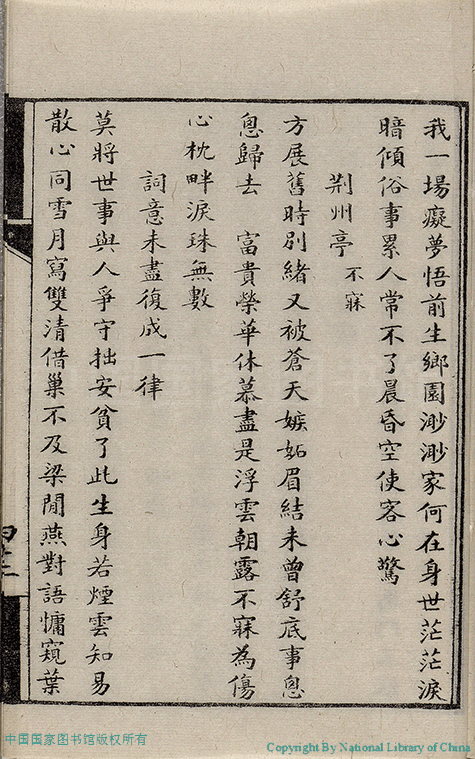 我一場癡夢悟前生鄉園渺渺家何在身世茫茫淚
暗傾俗事累人常不了晨昏空使客心驚
荆州亭 不寐
方展舊時別緒又被蒼天嫉妬眉結未曾舒底事悤
悤歸去 富貴榮華休慕盡是浮雲朝露不寐為傷
心枕畔淚珠無數
詞意未盡復成一律
莫將世事與人爭守拙安貧了此生身若煙雲知易
散心同雪月寫雙清借巢不及梁間燕對語慵窺葉
中国国家图书馆版权所有
Copyright By National Library of China